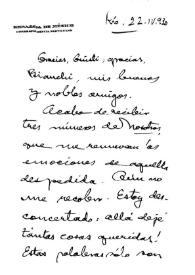 EMBAJADA DE MÉXICO
Río, 22.IV.930
Gracias, Giusti, gracias,
Bianchi, mis buenos
y nobles amigos.
Acabo de recibir
tres números de Nosotros
que me renuevan las
emociones de aquella
despedida. Aún no
me recobro. Estoy des-
concertado: allá dejé
tántas cosas queridas!
Estas palabras sólo son